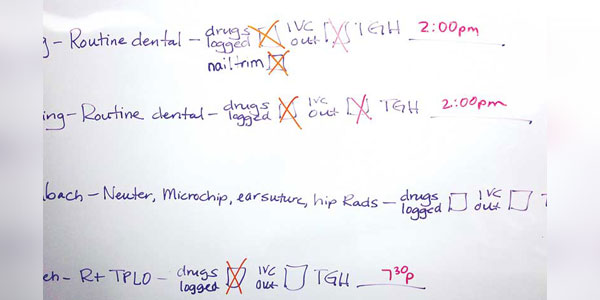 g - Routine dental - drugs logged IVC out TGH 2:00pm
nail trim
ing - Routine dental - drugs logged IVC out TGH 2:00pm
bach - Neuter, Microchip, ear suture, hip Rads - drugs logged IVC out T
eh - Rt TPLO - drugs logged IVC out TGH 730p